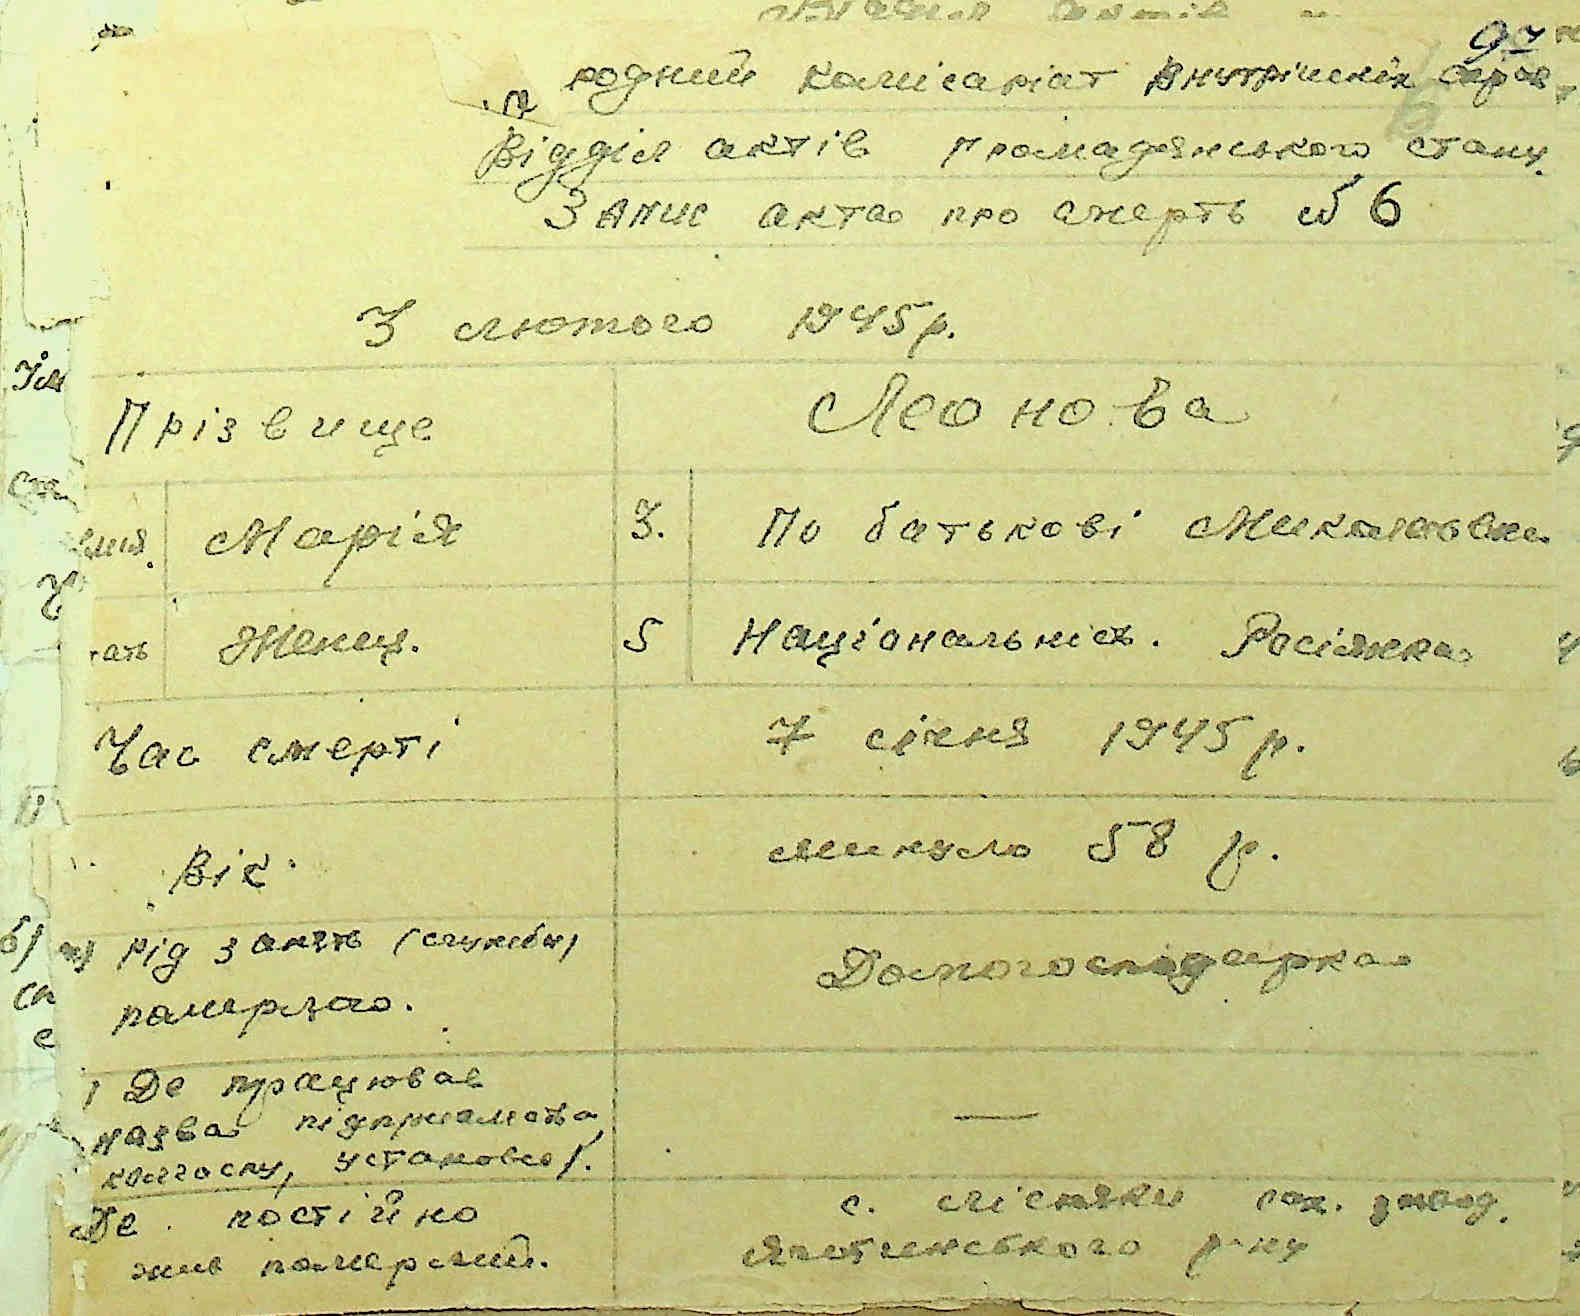 97
родний комісаріат Внутрішніх справ
Відділ актів громадянського стану.
Запис акта про смерть № 6
3 лютого 1945 р.
Прізвище Леонова
Марія 3. По батькові Миколаївна
ать Женщ. 5 Національність. Росіянка
Час смерті 7 січня 1945 р.
Вік. минуло 58 р.
Рід занять (служби)
померлого. Домогосподарка
Де працював
назва підприємства,
колгоспу, установи/. —
Де постійно с. Лісняки цук. завод.
жив померлий. Яготинського р-ну